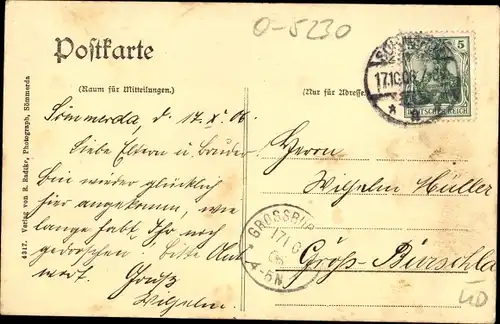 O-5230
Postkarte
(Raum für Mitteilungen.)
(Nur für Adresse
5
DEUTSCHES REICH
17.10.06
Sömmerda, d. 17. X. 06.
Liebe Eltern u. Bruder
Bin wieder glücklich
hier angekommen, wie
lange habt Ihr noch
gedroschen. Bitte Ant-
wort. Gruß
Wilhelm.
Herrn
Wilhelm Müller
Groß-Burschla
GROSSBUR
17.10
06
4-5N
4317. Verlag von R. Radskr, Photograph, Sömmerda
UD